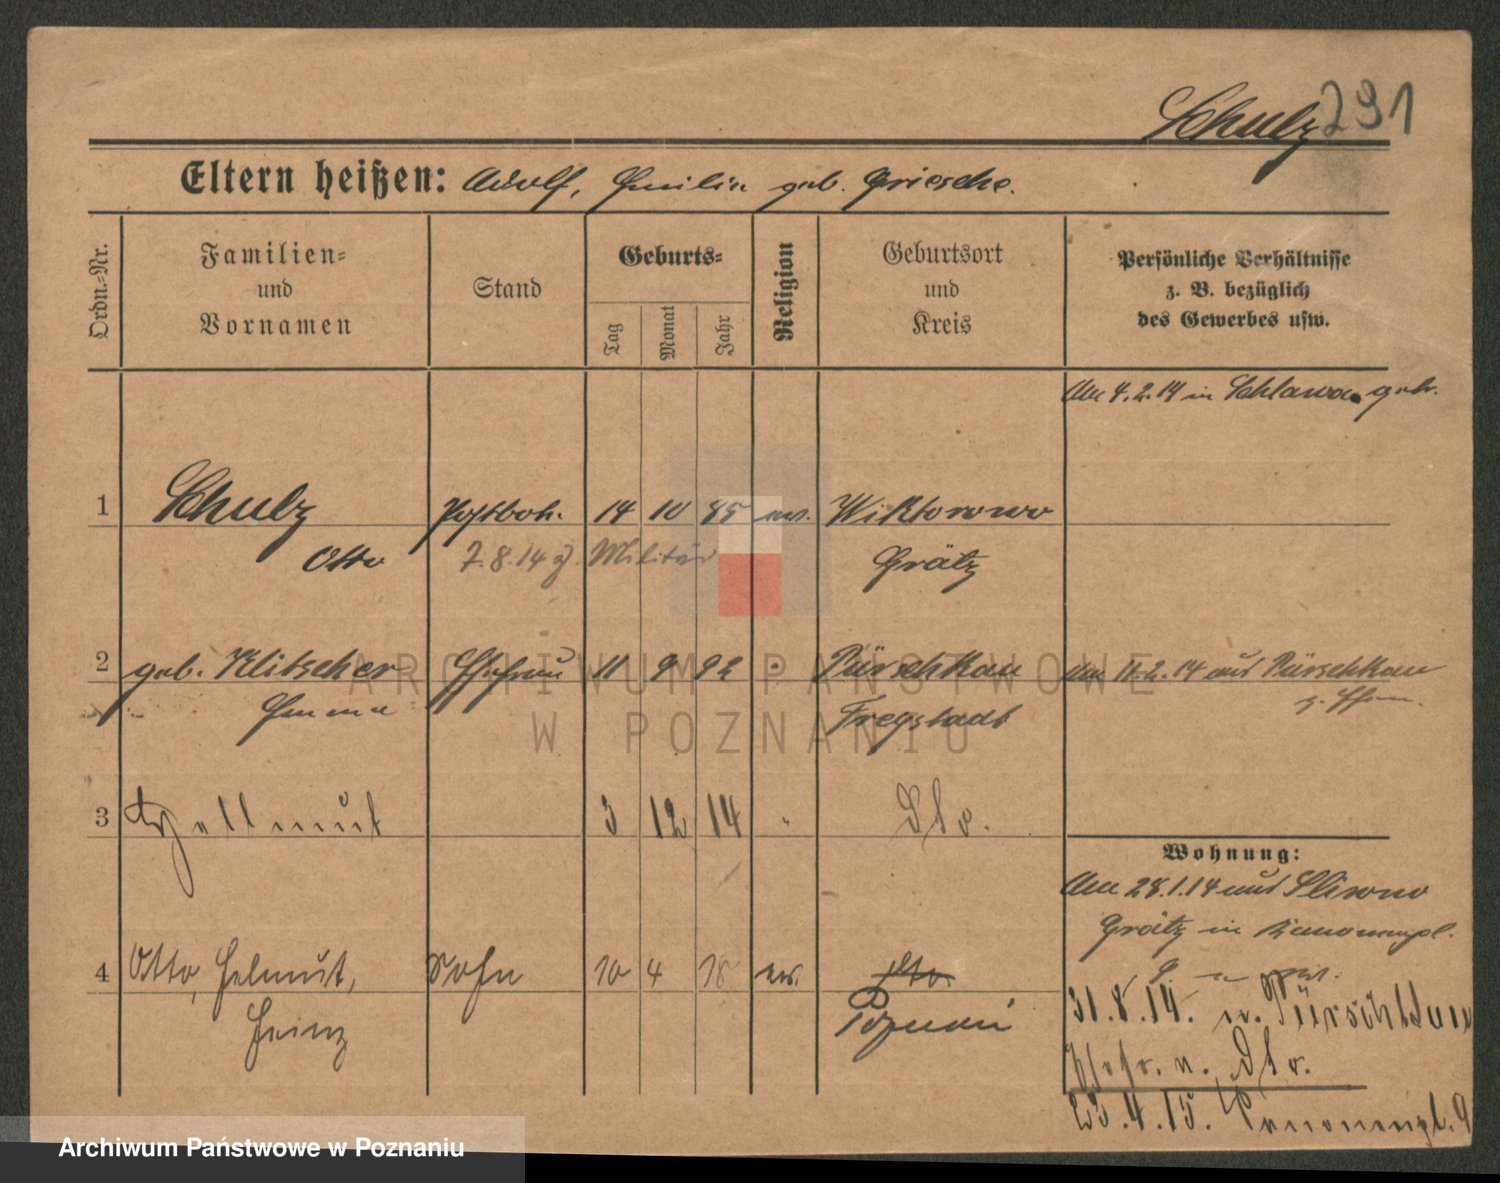 Schulz 291
Eltern heißen: Adolf, Emilie geb. Griesche.
Ordn.-Nr.
Familien-
und
Vornamen
Stand
Geburts-
Tag
Monat
Jahr
Religion
Geburtsort
und
Kreis
Persönliche Verhältnisse
z. B. bezüglich
des Gewerbes usw.
Am 4.2.14 in Schlawa getr.
1 Schulz Postbot. 14 10 85 ev. Wiktorowo
Otto 7.8.14 z. Militär Grätz
2 geb. Klitscher Ehefrau 11 9 92 " Pürschkau Am 11.2.14 aus Pürschkau
Emma Freystadt z. Ehem.
3 Hellmut 3 12 14 " Dto.
Wohnung:
Am 28.1.14 aus Sliwno
Grätz in Kanonenpl.
4 Otto, Helmut, Sohn 10 4 18 ev. dto.
Heinz Poznań
31.8.14. n. Pürschkau
n. Dto.
23.4.15. Kanonenpl. 9
ARCHIWUM PAŃSTWOWE
W POZNANIU
Archiwum Państwowe w Poznaniu